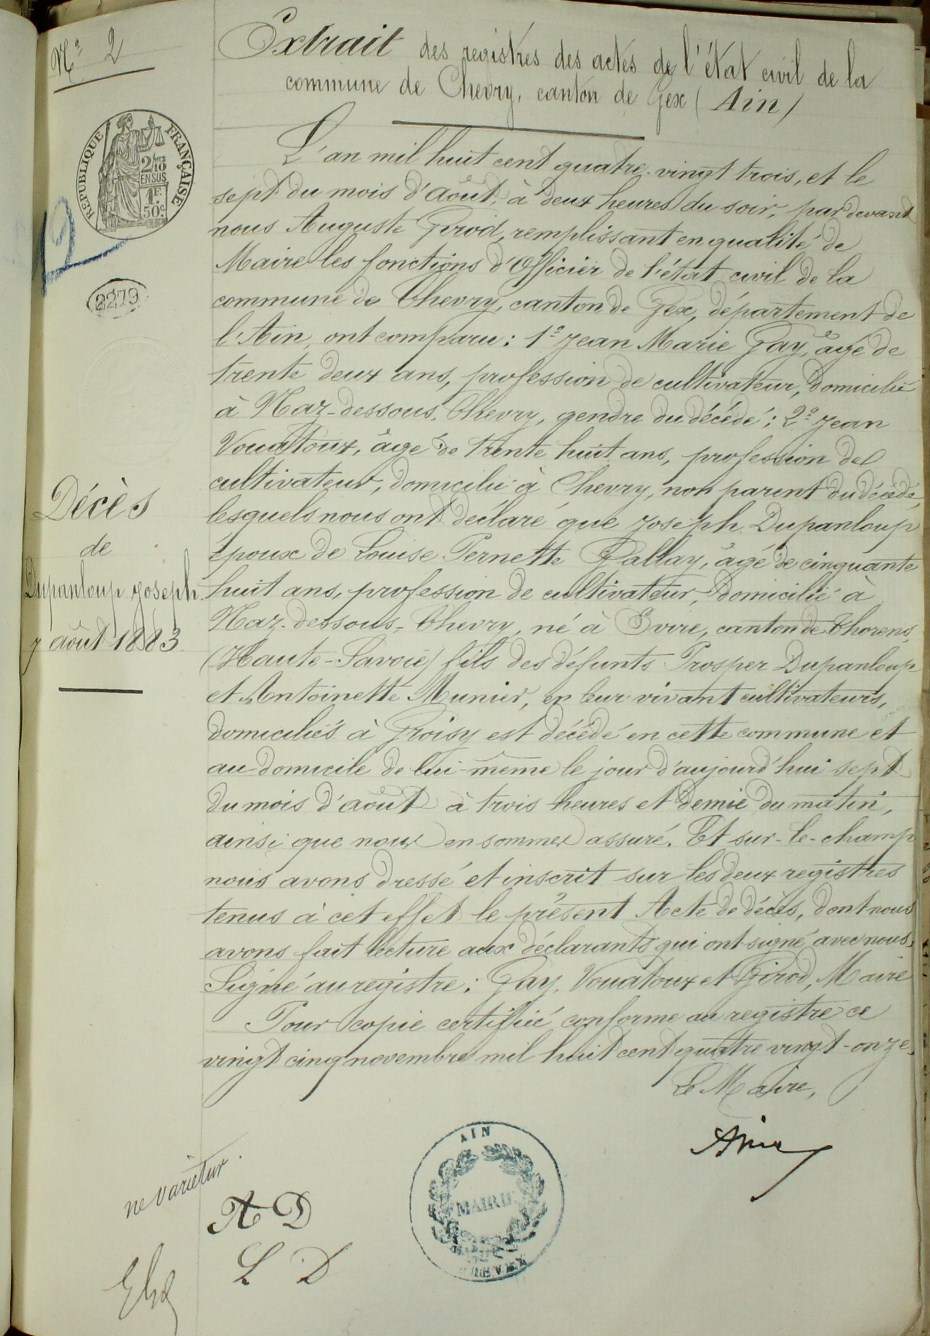 Nº 2
Extrait des registres des actes de l'état civil de la
commune de Chevry, canton de Gex (Ain)
RÉPUBLIQUE FRANÇAISE
2/10
EN SUS
1F
50c
2
2279
L'an mil huit cent quatre-vingt trois, et le
sept du mois d'août, à deux heures du soir, par devant
nous Auguste Girod, remplissant en qualité de
Maire les fonctions d'Officier de l'état civil de la
commune de Chevry, canton de Gex, département de
l'Ain, ont comparu : 1º Jean Marie Gay, âgé de
trente deux ans, profession de cultivateur, domicilié
à Naz-dessous, Chevry, gendre du décédé ; 2º Jean
Vouatoux, âgé de trente huit ans, profession de
cultivateur, domicilié à Chevry, non parent du décédé,
lesquels nous ont déclaré que Joseph Dupanloup
époux de Louise Pernette Pallay, âgé de cinquante
huit ans, profession de cultivateur, domicilié à
Naz-dessous-Chevry, né à Evire, canton de Thorens
(Haute-Savoie) fils des défunts Prosper Dupanloup
et Antoinette Munier, en leur vivant cultivateurs,
domiciliés à Groisy est décédé en cette commune et
au domicile de lui-même le jour d'aujourd'hui sept
du mois d'août à trois heures et demie du matin,
ainsi que nous en sommes assuré. Et sur-le-champ
nous avons dressé et inscrit sur les deux registres
tenus à cet effet le présent Acte de décès, dont nous
avons fait lecture aux déclarants qui ont signé avec nous.
Signé au registre : Gay, Vouatoux et Girod, Maire
Pour copie certifiée conforme au registre ce
vingt cinq novembre mil huit cent quatre vingt-onze.
Le Maire,
Décès
de
Dupanloup Joseph
7 août 1883
ne varietur
A D
L D
AIN
MAIRIE